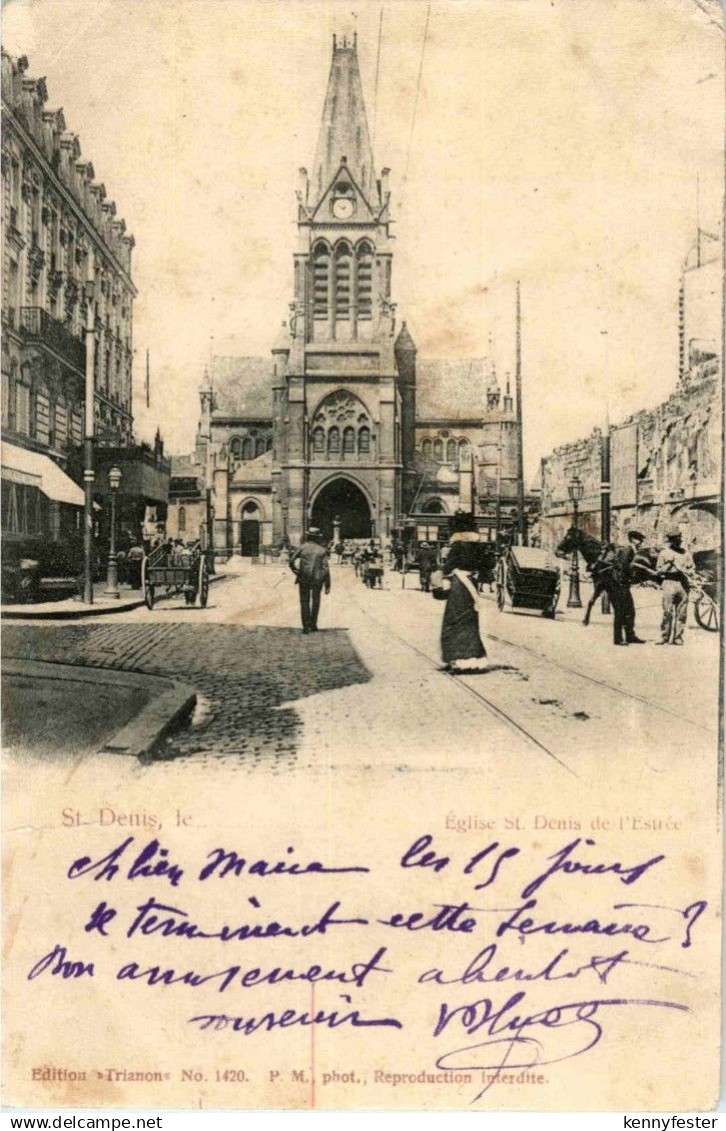 St. Denis, le
Église St. Denis de l'Estrée
Marie les 15 jours
se terminent cette semaine?
Bon amusement à bientôt
souvenir
Edition »Trianon« No. 1420. P. M., phot., Reproduction interdite.
delcampe.net
kennyfester